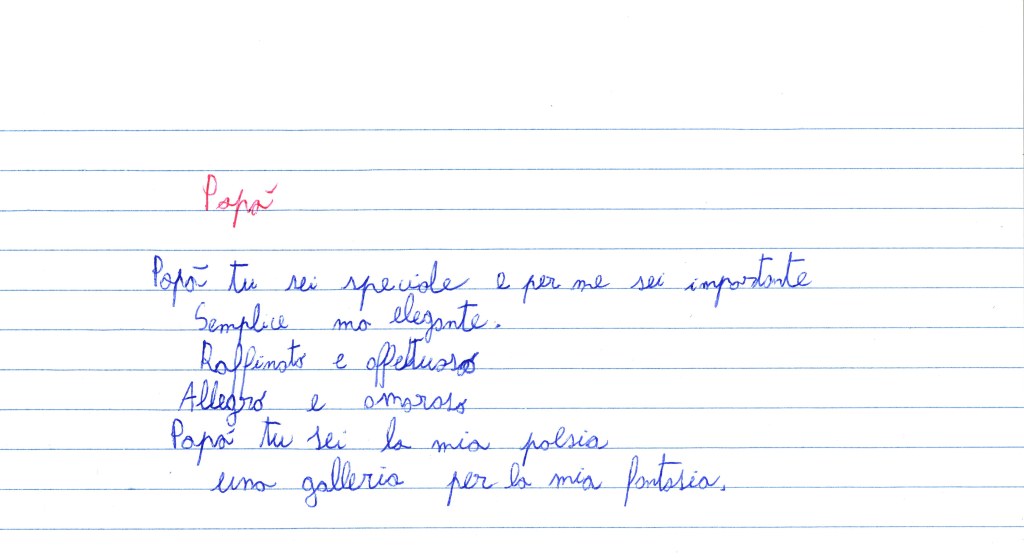 Papà
Papà tu sei speciale e per me sei importante
Semplice ma elegante.
Raffinato e affettuoso
Allegro e amoroso
Papà tu sei la mia poesia
una galleria per la mia fantasia.